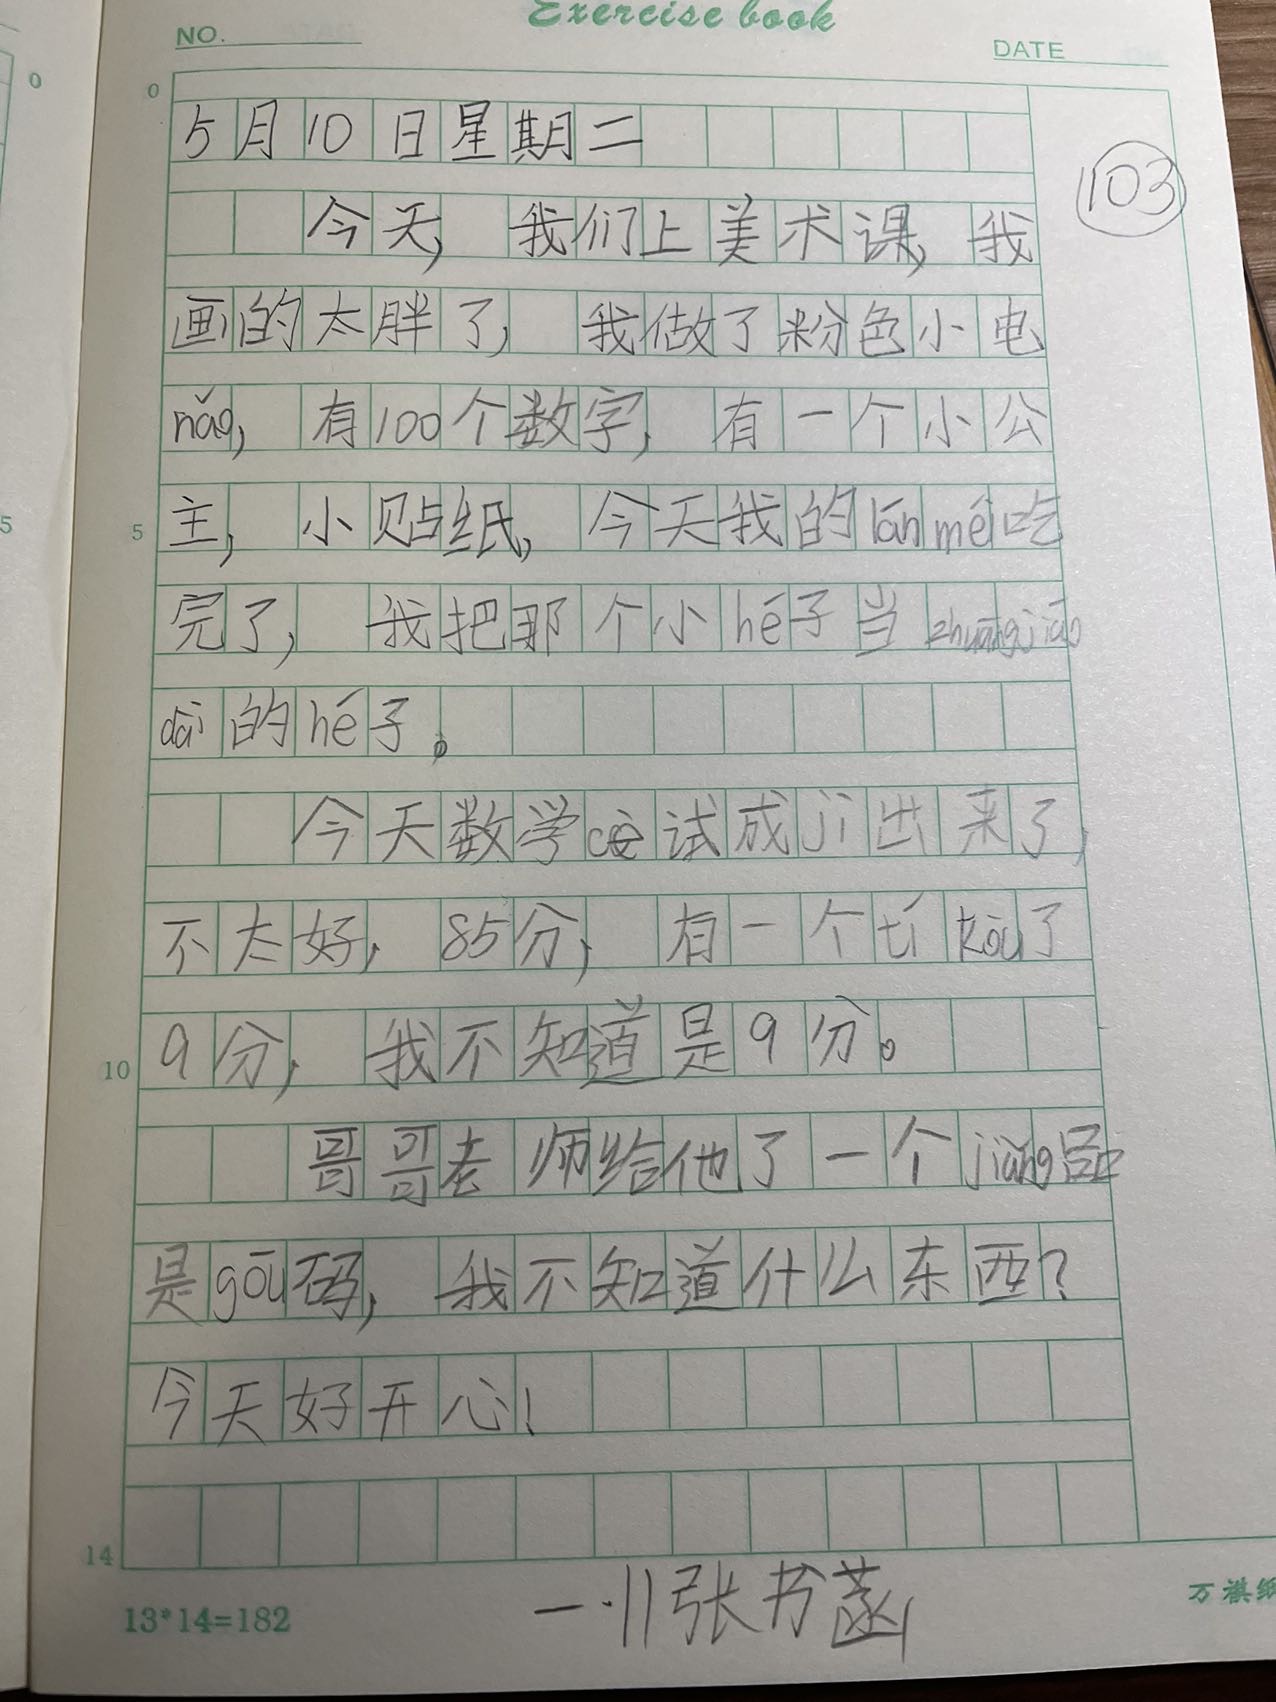 Exercise book
NO.
DATE
0
0
5月10日星期二
103
今天，我们上美术课，我
画的太胖了，我做了粉色小电
nǎo，有100个数字，有一个小公
5
5
主，小贴纸，今天我的lán méi吃
完了，我把那个小hé子当zhuāngjiāo
dài的hé子。
今天数学cè试成jì出来了，
不太好，85分，有一个tí kòu了
10
9分，我不知道是9分。
哥哥老师给他了一个jiǎng品
是gōu码，我不知道什么东西？
今天好开心！
14
一·11张书菡
13*14=182
万祺纸